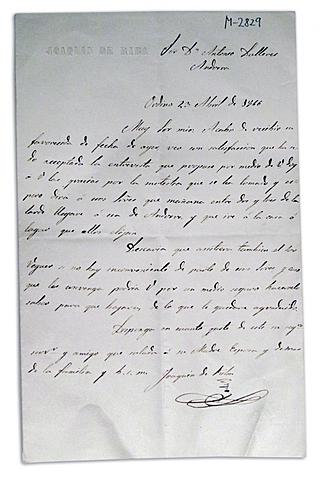 M-2829
JOAQUIN DE RIBA
Sor Dn Antonio Dalleres
Andorra
Ordino 23 Abril de 1866
Muy Sor mio: Acabo de recibir su
favorecida de fecha de ayer veo con satisfaccion que ha si
do aceptada la entrevista que propuse por medio de V. doy
a V. las gracias por la molestia que se ha tomado y es
pero dirá á sus tios que mañana entre dos y tres de la
tarde llegaré á esa de Andorra y que iré á la casa ó
lugar que ellos elijan.
Desearia que asistiera tambien el Sor
Veguer si no hay inconveniente de parte de sus tios y caso
que les convenga podria V. por un medio seguro hacerselo
saber para que bajara, de lo que le quedare agradecido.
en cuanto guste de este su seguro
servor y amigo que saluda á su Madre Esposa y demas
de la familia y b.s.m.
Joaquin de Riba